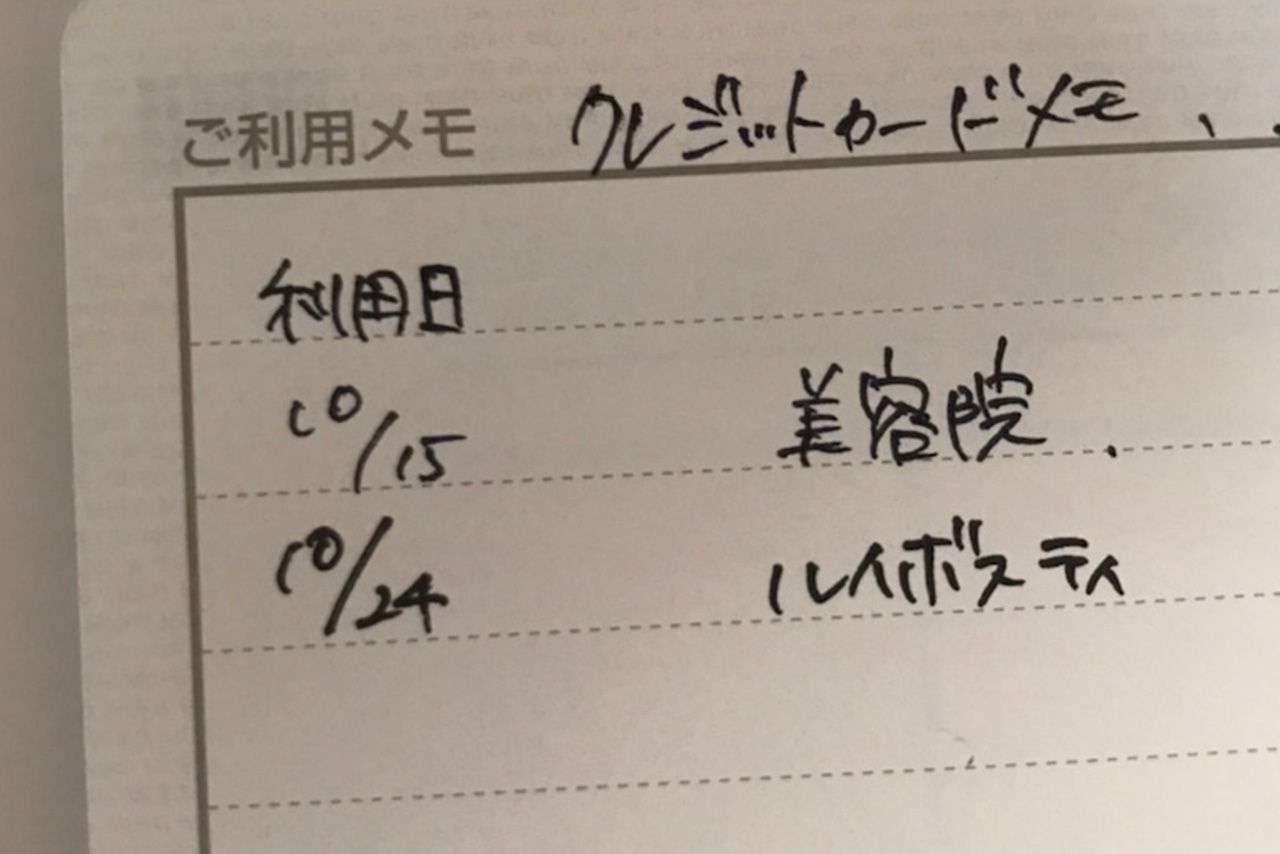 ご利用メモ クレジットカードメモ、
利用日
10/15 美容院.
10/24 ルイボスティ